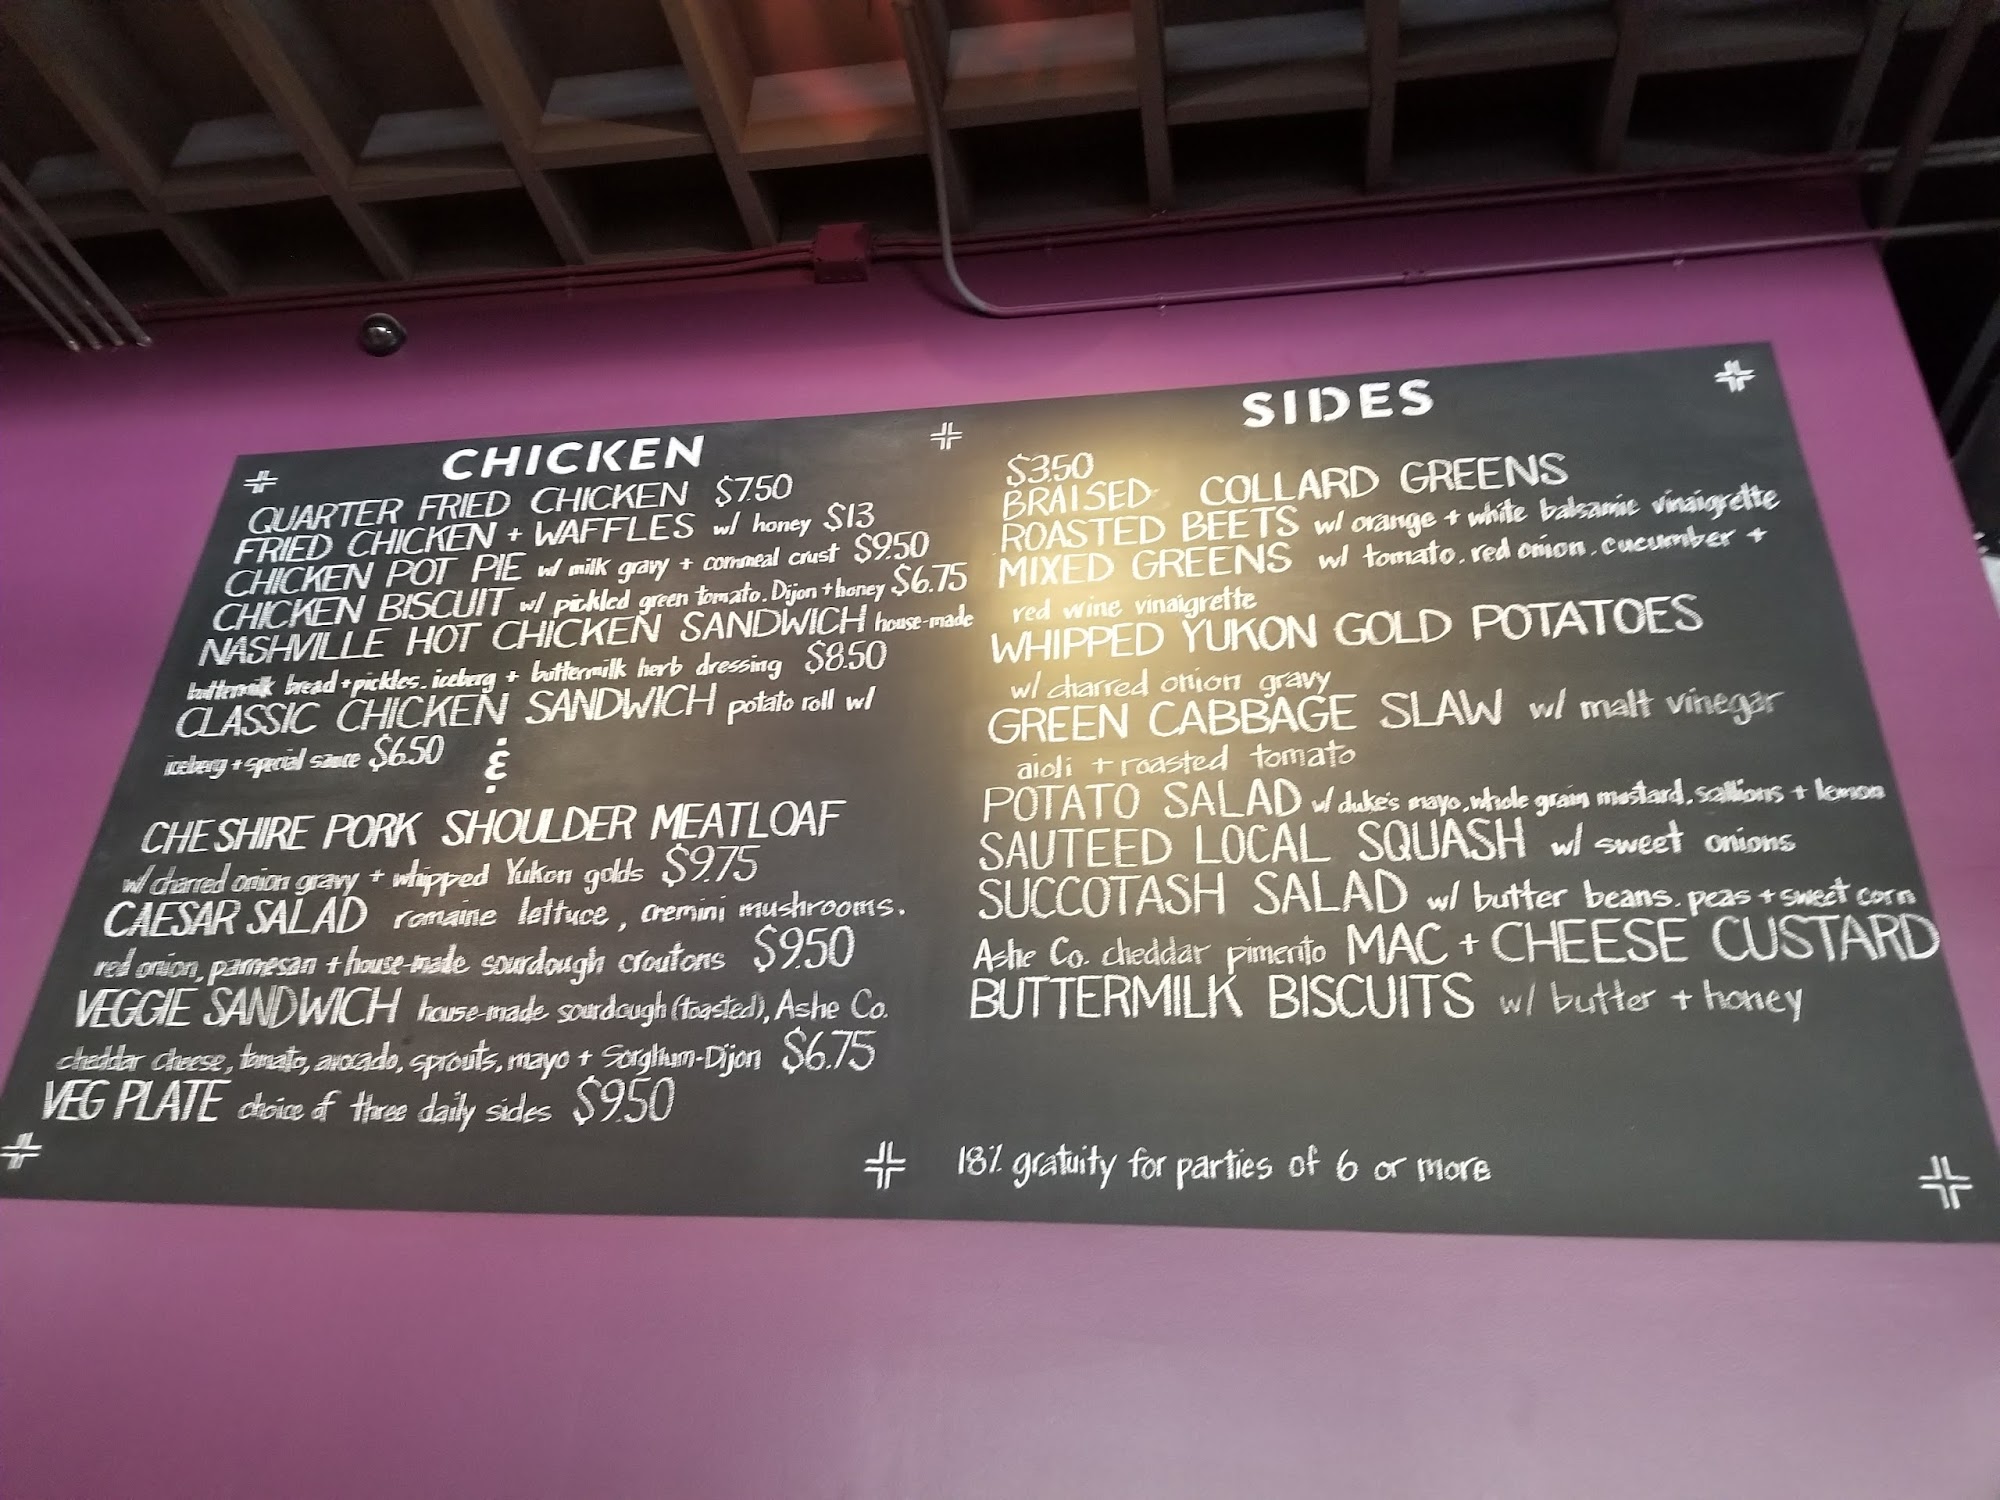 CHICKEN
QUARTER FRIED CHICKEN $7.50
FRIED CHICKEN + WAFFLES w/ honey $13
CHICKEN POT PIE w/ milk gravy + cornmeal crust $9.50
CHICKEN BISCUIT w/ pickled green tomato, Dijon + honey $6.75
NASHVILLE HOT CHICKEN SANDWICH house-made
buttermilk bread + pickles, iceberg + buttermilk herb dressing $8.50
CLASSIC CHICKEN SANDWICH potato roll w/
iceberg + special sauce $6.50
&
CHESHIRE PORK SHOULDER MEATLOAF
w/ charred onion gravy + whipped Yukon golds $9.75
CAESAR SALAD romaine lettuce, cremini mushrooms,
red onion, parmesan + house-made sourdough croutons $9.50
VEGGIE SANDWICH house-made sourdough (toasted), Ashe Co.
cheddar cheese, tomato, avocado, sprouts, mayo + Sorghum-Dijon $6.75
VEG PLATE choice of three daily sides $9.50
SIDES
$3.50
BRAISED COLLARD GREENS
ROASTED BEETS w/ orange + white balsamic vinaigrette
MIXED GREENS w/ tomato, red onion, cucumber +
red wine vinaigrette
WHIPPED YUKON GOLD POTATOES
w/ charred onion gravy
GREEN CABBAGE SLAW w/ malt vinegar
aioli + roasted tomato
POTATO SALAD w/ duke's mayo, whole grain mustard, scallions + lemon
SAUTEED LOCAL SQUASH w/ sweet onions
SUCCOTASH SALAD w/ butter beans, peas + sweet corn
Ashe Co. cheddar pimento MAC + CHEESE CUSTARD
BUTTERMILK BISCUITS w/ butter + honey
18% gratuity for parties of 6 or more